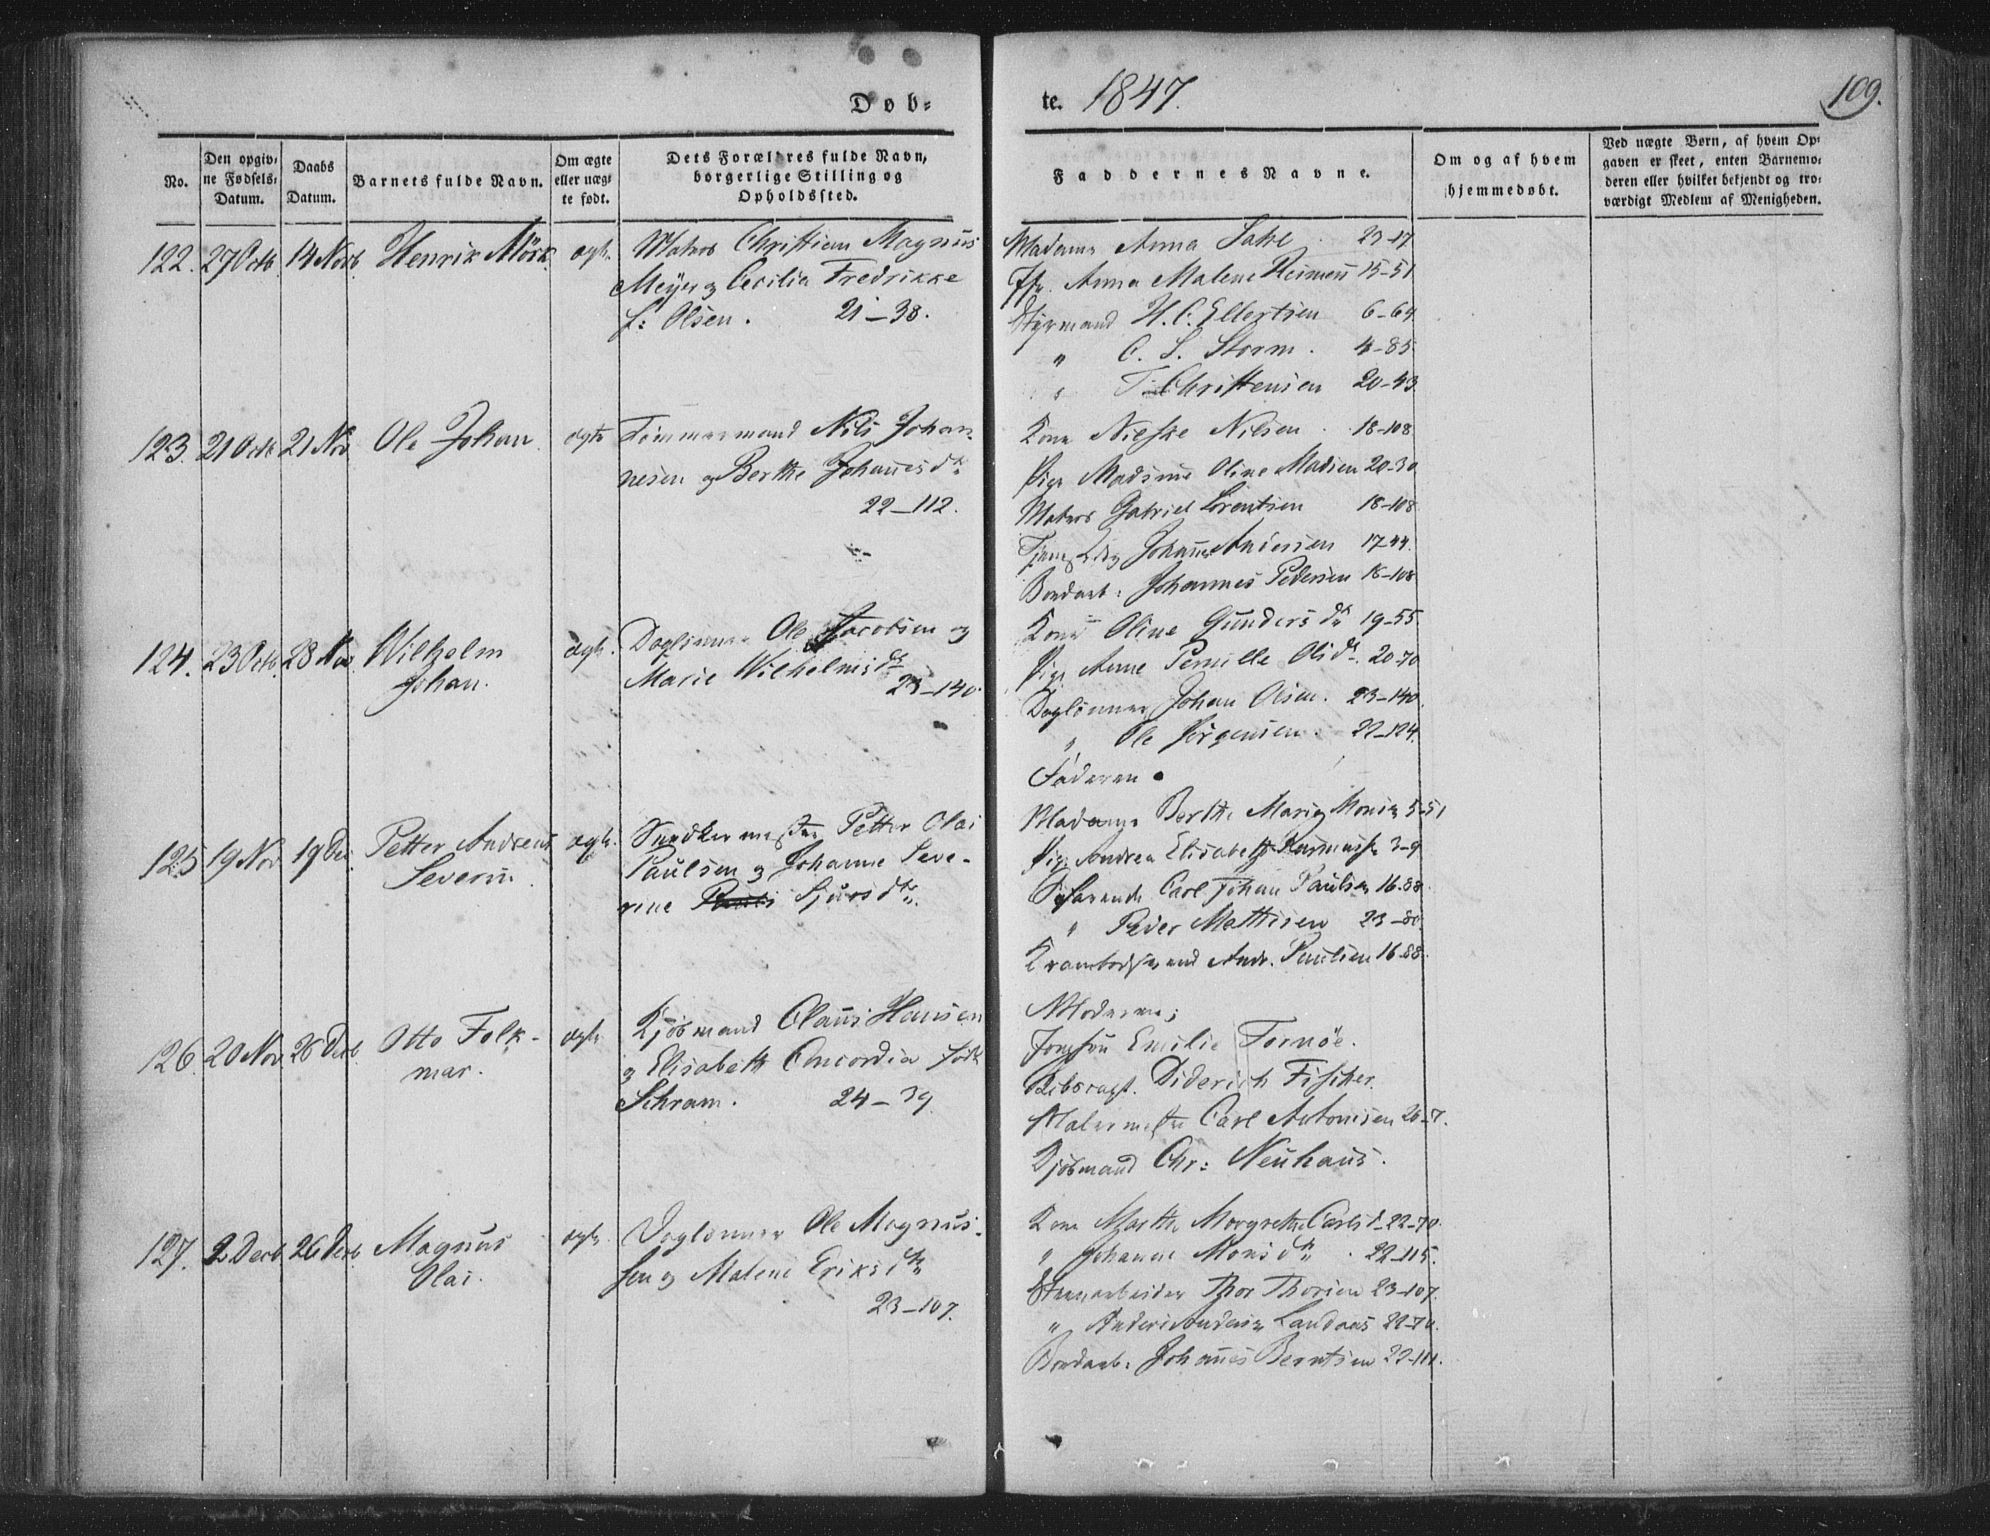 Døb-
te. 1847.
109.
No.
Den opgiv-
ne Fødsels-
Datum.
Daabs
Datum.
Barnets fulde Navn.
Om ægte
eller uægt
te født.
Dets Forældres fulde Navn,
borgerlige Stilling og
Opholdssted.
Faddernes Navne.
Om og af hvem
hjemmedøbt.
Ved uægte Børn, af hvem Op-
gaven er skeet, enten Barnemo-
deren eller hvilket bekjendt og tro-
værdigt Medlem af Menigheden.
122. 27 Octb. 14 Novb. Henrik Mörk ægte.
Matros Christian Magnus
Meyer og Cecilia Fredrikke
f: Olsen. 21-38.
Madame Anna 23-17
Anna Malene 15-51
Styrmand H. C. Ellertsen 6-64
" C. S. Storm. 4-85.
" T. Christensen 20-43
123. 21 Octb 21 Nov Ole Johan. ægte
Tömmermand Nils Johan-
nesen og Berthe Johannesdtr
22-112.
Kone Nilsen. 18-108
Pige Oline Madsen 20-30
Matros Gabriel Lorentsen 18-108
Johannes Andersen 17-44.
Bordarb: Johannes Pedersen 18-108
124. 23 Octb. 28 Nov. Wilhelm
Johan.
ægte.
Daglönner Ole Jacobsen og
Marie Wilhelmsdtr
23-140.
Kone Oline Gundersdtr 19-55.
Pige Anne Pernille Olsdtr. 20-70
Daglönner Johan Olsen. 23-140.
" Ole Jörgensen. 22-124.
Faderen.
125 19 Nov 19 Dec. Petter Andreas
Severin.
ægte.
Snedkermester Petter Olai
Paulsen og Johanne Seve-
rine Sjursdtr.
Madame Berthe Marie 5-51
Pige Andrea Elisabeth 3-9
Söfarende Carl Johan Paulsen 16-88.
" Peder Mathisen 23-80.
Andr. Paulsen 16-88.
126. 20 Nov. 26 Decb. Otto Folk-
mar.
ægte
Kjöbmand Olaus Hansen
og Elisabeth Concordia födt
Schram. 24-39.
Moderen;
Jomfru Emilie Tornöe.
Diderich Fischer.
Malermester Carl Antonisen 20-7.
Kjöbmand Chr: Neuhaus.
127. 2 Decb 26 Decb. Magnus
Olai.
ægte.
Daglönner Ole Magnus-
sen og Malene Eriksdtr
23-107.
Kone Marthe Margrethe Carlsd. 22-70.
" Johanne Monsdtr. 22-115.
Steenarbeider Thor Thorsen 23-107.
" Anders Andersen Landaas 22-70.
Bordarb: Johannes Berntsen 22-111.